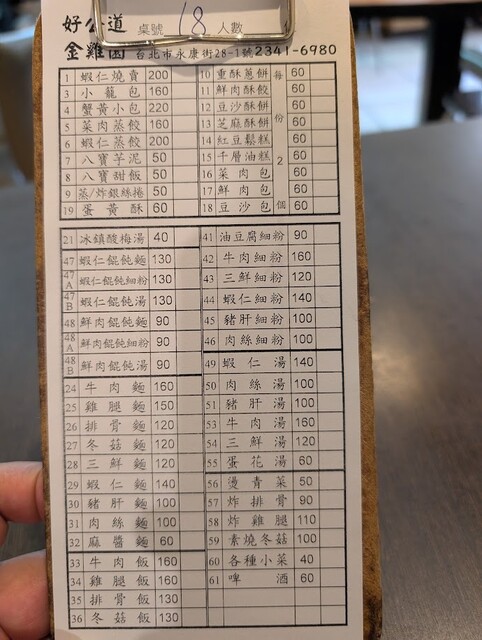 好公道 桌號 18 人數
金雞園 台北市永康街28-1號 2341-6980
1 蝦仁燒賣 200
3 小籠包 160
4 蟹黃小包 220
5 菜肉蒸餃 160
6 蝦仁蒸餃 200
7 八寶芋泥 50
8 八寶甜飯 50
9 蒸/炸銀絲捲 50
19 蛋黃酥 60
10 重酥蔥餅 60
11 鮮肉酥餃 60
12 豆沙酥餅 60
13 芝麻酥餅 60
14 紅豆鬆糕 60
15 千層油糕 60
16 菜肉包 60
17 鮮肉包 60
18 豆沙包 60
每份2個
21 冰鎮酸梅湯 40
47 蝦仁餛飩麵 130
47A 蝦仁餛飩細粉 130
47B 蝦仁餛飩湯 130
48 鮮肉餛飩麵 90
48A 鮮肉餛飩細粉 90
48B 鮮肉餛飩湯 90
24 牛肉麵 160
25 雞腿麵 150
26 排骨麵 120
27 冬菇麵 120
28 三鮮麵 120
29 蝦仁麵 140
30 豬肝麵 100
31 肉絲麵 100
32 麻醬麵 60
33 牛肉飯 160
34 雞腿飯 160
35 排骨飯 130
36 冬菇飯 130
41 油豆腐細粉 90
42 牛肉細粉 160
43 三鮮細粉 120
44 蝦仁細粉 140
45 豬肝細粉 100
46 肉絲細粉 100
49 蝦仁湯 140
50 肉絲湯 100
51 豬肝湯 100
53 牛肉湯 160
54 三鮮湯 120
55 蛋花湯 60
56 燙青菜 50
57 炸排骨 90
58 炸雞腿 110
59 素燒冬菇 100
60 各種小菜 40
61 啤酒 60